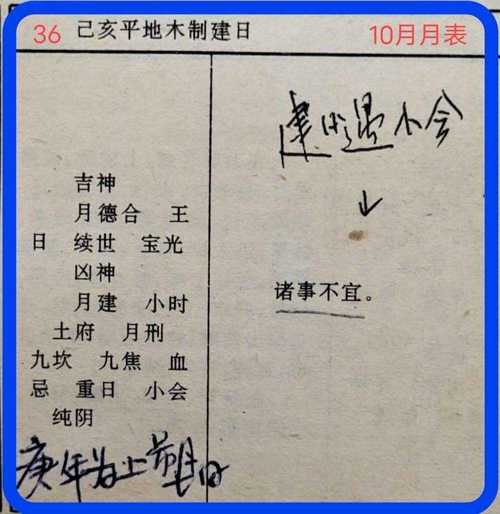 36 己亥平地木制建日 10月月表
吉神
月德合 王
日 续世 宝光
凶神
月建 小时
土府 月刑
九坎 九焦 血
忌 重日 小会
纯阴
建日遇小会
诸事不宜。
庚年为上朔日